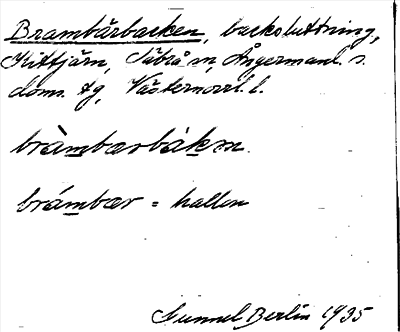 Brambärbacken, backsluttning,
Kittjärn, Säbrå sn, Ångermanl. s.
doms. tg, Västernorrl. l.
bràmbærbákɳ.
brámbær = hallon
Gunnel Berlin 1935